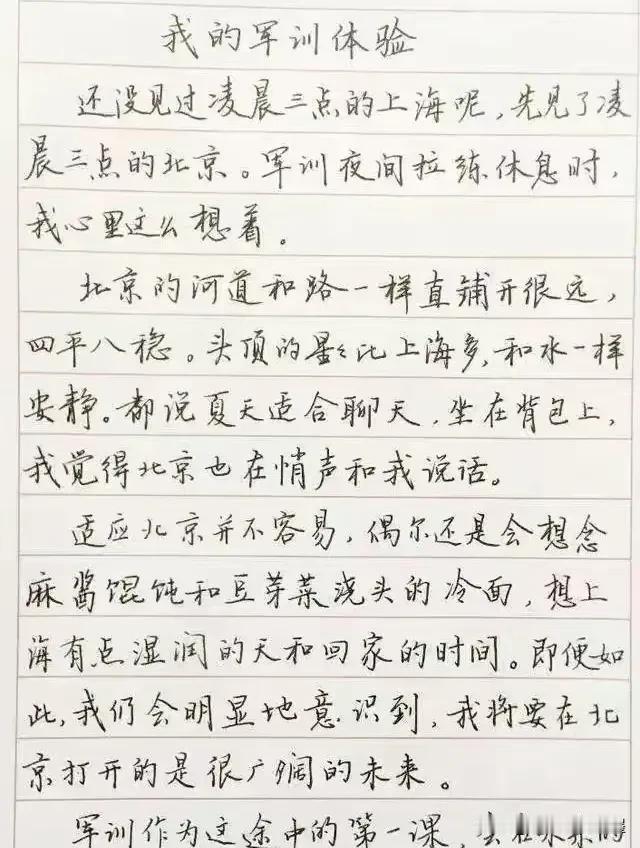 我的军训体验
还没见过凌晨三点的上海呢，先见了凌
晨三点的北京。军训夜间拉练休息时，
我心里这么想着。
北京的河道和路一样直铺开很远，
四平八稳。头顶的影比上海多，和水一样
安静。都说夏天适合聊天，坐在背包上，
我觉得北京也在悄声和我说话。
适应北京并不容易，偶尔还是会想念
麻酱馄饨和豆芽菜浇头的冷面，想上
海有点湿润的天和回家的时间。即便如
此，我们会明显地意识到，我将要在北
京打开的是很广阔的未来。
军训作为这途中的第一课，